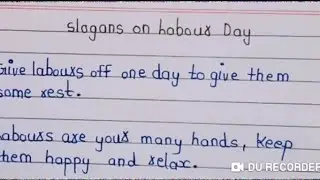 slogans on Labour Day
Give labours off one day to give them
some rest.
Labours are your many hands, keep
them happy and relax.
DU RECORDER